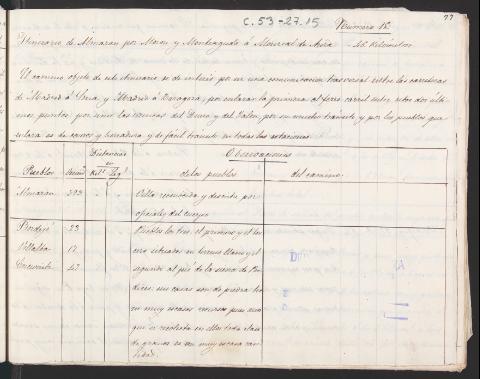 77
C.53-27.15
Número 12
Itinerario de Almazan por Moron y Monteagudo á Monreal de Ariza
El camino objeto de este itinerario es de interés por ser una comunicacion trasversal entre las carreteras
de Madrid á Soria, y Madrid á Zaragoza; por enlazar la primera al ferro carril entre estos dos últi-
mos puntos; por unir las cuencas del Duero y del Jalon, por su mucho tránsito y por los pueblos que
enlaza: es de carros y herradura y de fácil tránsito en todas las estaciones.
Pueblos
Distancias
en
Kils. Leg.
Observaciones
de los pueblos
del camino.
Almazan 393
Villa reconocida y descrita por
oficiales del cuerpo
23
Villalba 17
47
Pueblos los tres, el primero y el ter-
cero situados en terreno llano y el
segundo al pié de la sierra de
sus casas son de piedra tie-
nen muy escasos recursos pues aun
que se recolecta en ellos toda clase
de granos es en muy escasa can-
tidad.